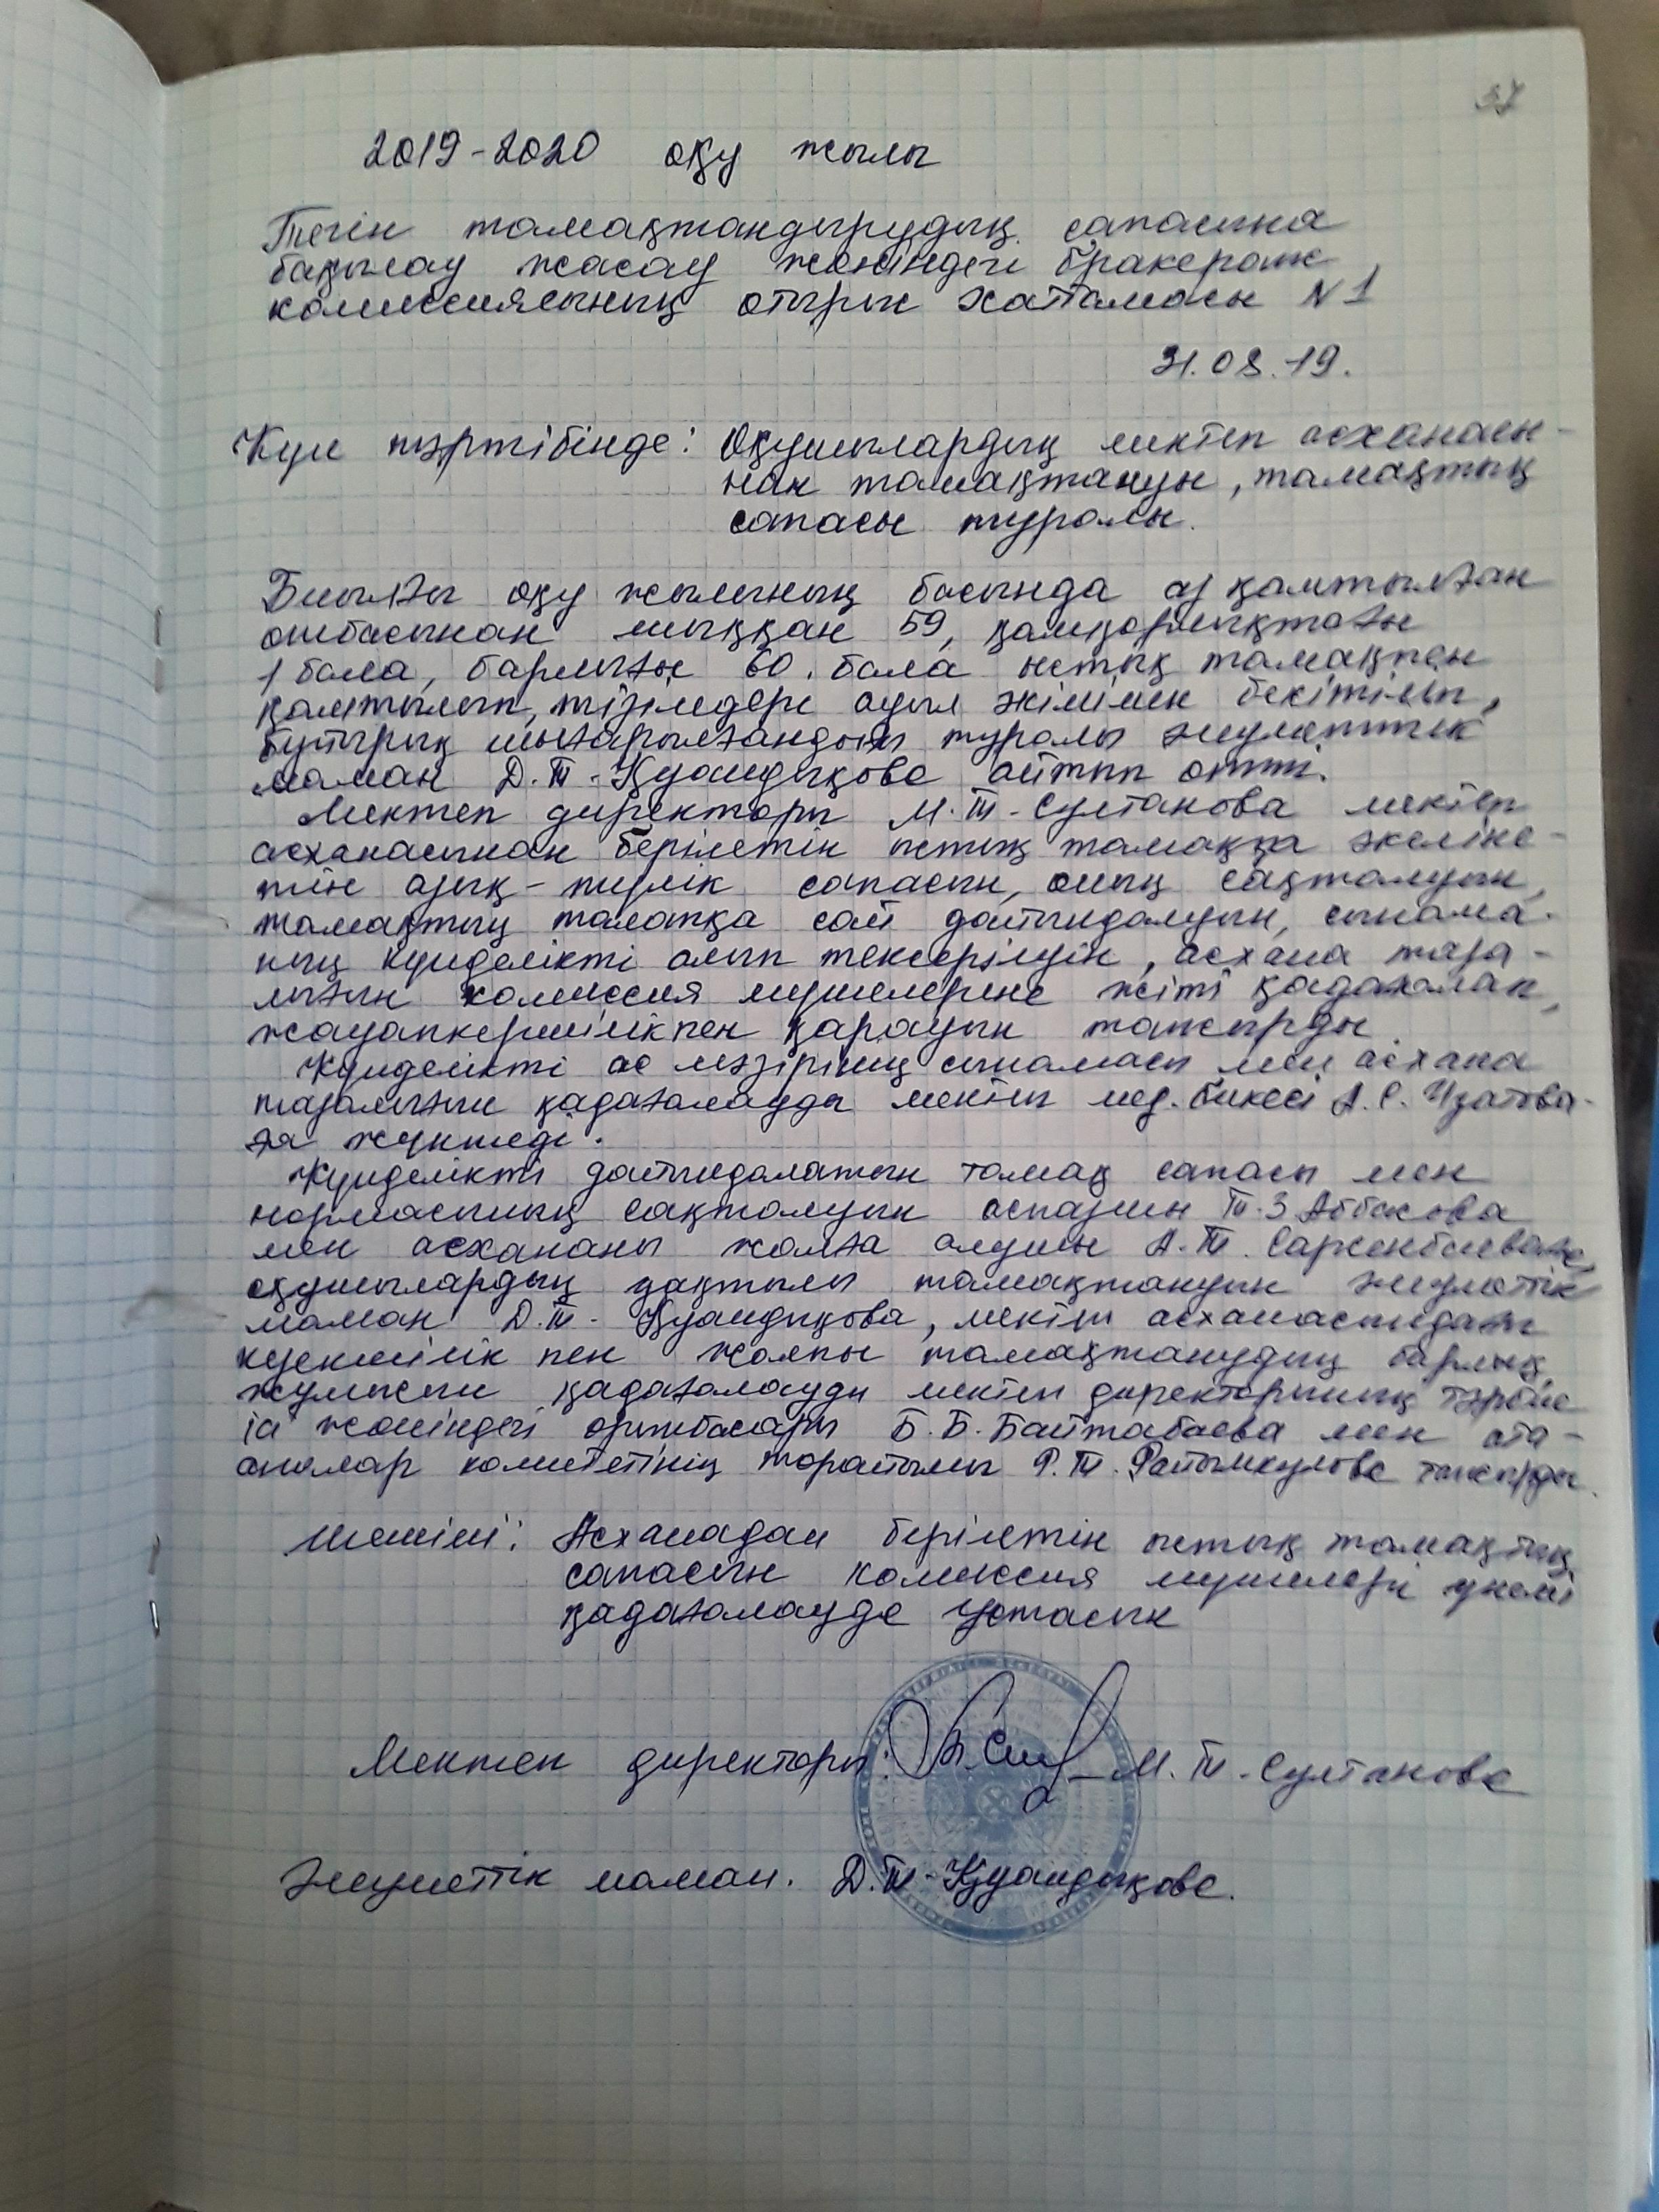 37
2019-2020 оқу жылы
Тегін тамақтандырудың сапасына
бақылау жасау жөніндегі бракераж
комиссиясының отырыс хаттамасы №1
31.08.19.
Күн тәртібінде: Оқушылардың мектеп асханасы-
нан тамақтануы, тамақтың
сапасы туралы.
Биылғы оқу жылының басында аз қамтылған
отбасынан шыққан 59, қамқорлықтағы
1 бала, барлығы 60 бала ыстық тамақпен
қамтылып, тізімдері ауыл әкімімен бекітіліп,
бұйрық шығарылғандығы туралы әлеуметтік
маман Д.Т. Қуандықова айтып өтті.
Мектеп директоры М.Т. Султанова мектеп
асханасынан берілетін ыстық тамаққа әкеліне-
тін азық-түлік сапасын, оның сақталуын,
тамақтың талапқа сай дайындалуын, сынама-
ның күнделікті алып тексерілуін, асхана таза-
лығын комиссия мүшелеріне жіті қадағалап,
жауапкершілікпен қарауын тапсырды.
Күнделікті ас мәзірінің сынамасы мен асхана
тазалығын қадағалауды мектеп мед. бикесі А.С. Изатова-
ға жүктеді.
Күнделікті дайындалатын тамақ сапасы мен
нормасының сақталуын аспазшы Т.З Аббасова
мен асхананы жалға алушы А.Т. Сарсенбаеваға,
оқушылардың уақтылы тамақтануын әлеуметтік
маман Д.Т. Қуандықова, мектеп асханасындағы
кезекшілік пен жалпы тамақтанудың барлық
жұмысын қадағалауды мектеп директорының тәрбие
ісі жөніндегі орынбасары Б.Б. Байтабаева мен ата-
аналар комитетінің төрайымы Р.Т. тапсырды.
Шешімі: Асханадан берілетін ыстық тамақтың
сапасын комиссия мүшелері үнемі
қадағалауда ұстасын
Мектеп директоры: М.Т. Султанова
Әлеуметтік маман. Д.Т. Қуандықова.